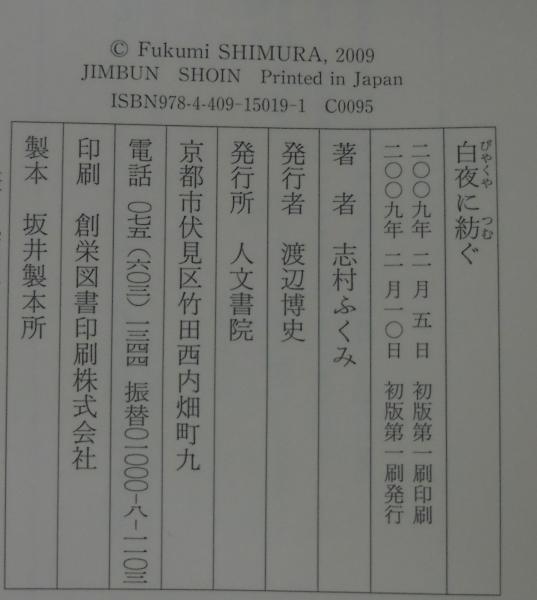 © Fukumi SHIMURA, 2009
JIMBUN SHOIN Printed in Japan
ISBN978-4-409-15019-1 C0095
白夜に紡ぐ
びゃくや つむ
二〇〇九年 二月 五日 初版第一刷印刷
二〇〇九年 二月一〇日 初版第一刷発行
著 者 志村ふくみ
発行者 渡辺博史
発行所 人文書院
京都市伏見区竹田西内畑町九
電話 〇七五(六〇三)一三四四 振替〇一〇〇〇-八-一一〇三
印刷 創栄図書印刷株式会社
製本 坂井製本所